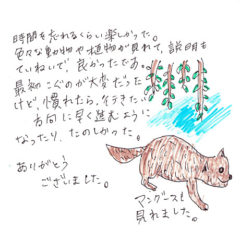 時間を忘れるくらい楽しかった。
色々な動物や植物が見れて、説明も
ていねいで、良かったであ。
最初こぐのが大変だった
けど、慣れたら、行きたい
方向に早く進むように
なったり、たのしかった。
ありがとう
ございました。
マングースも
見れました。